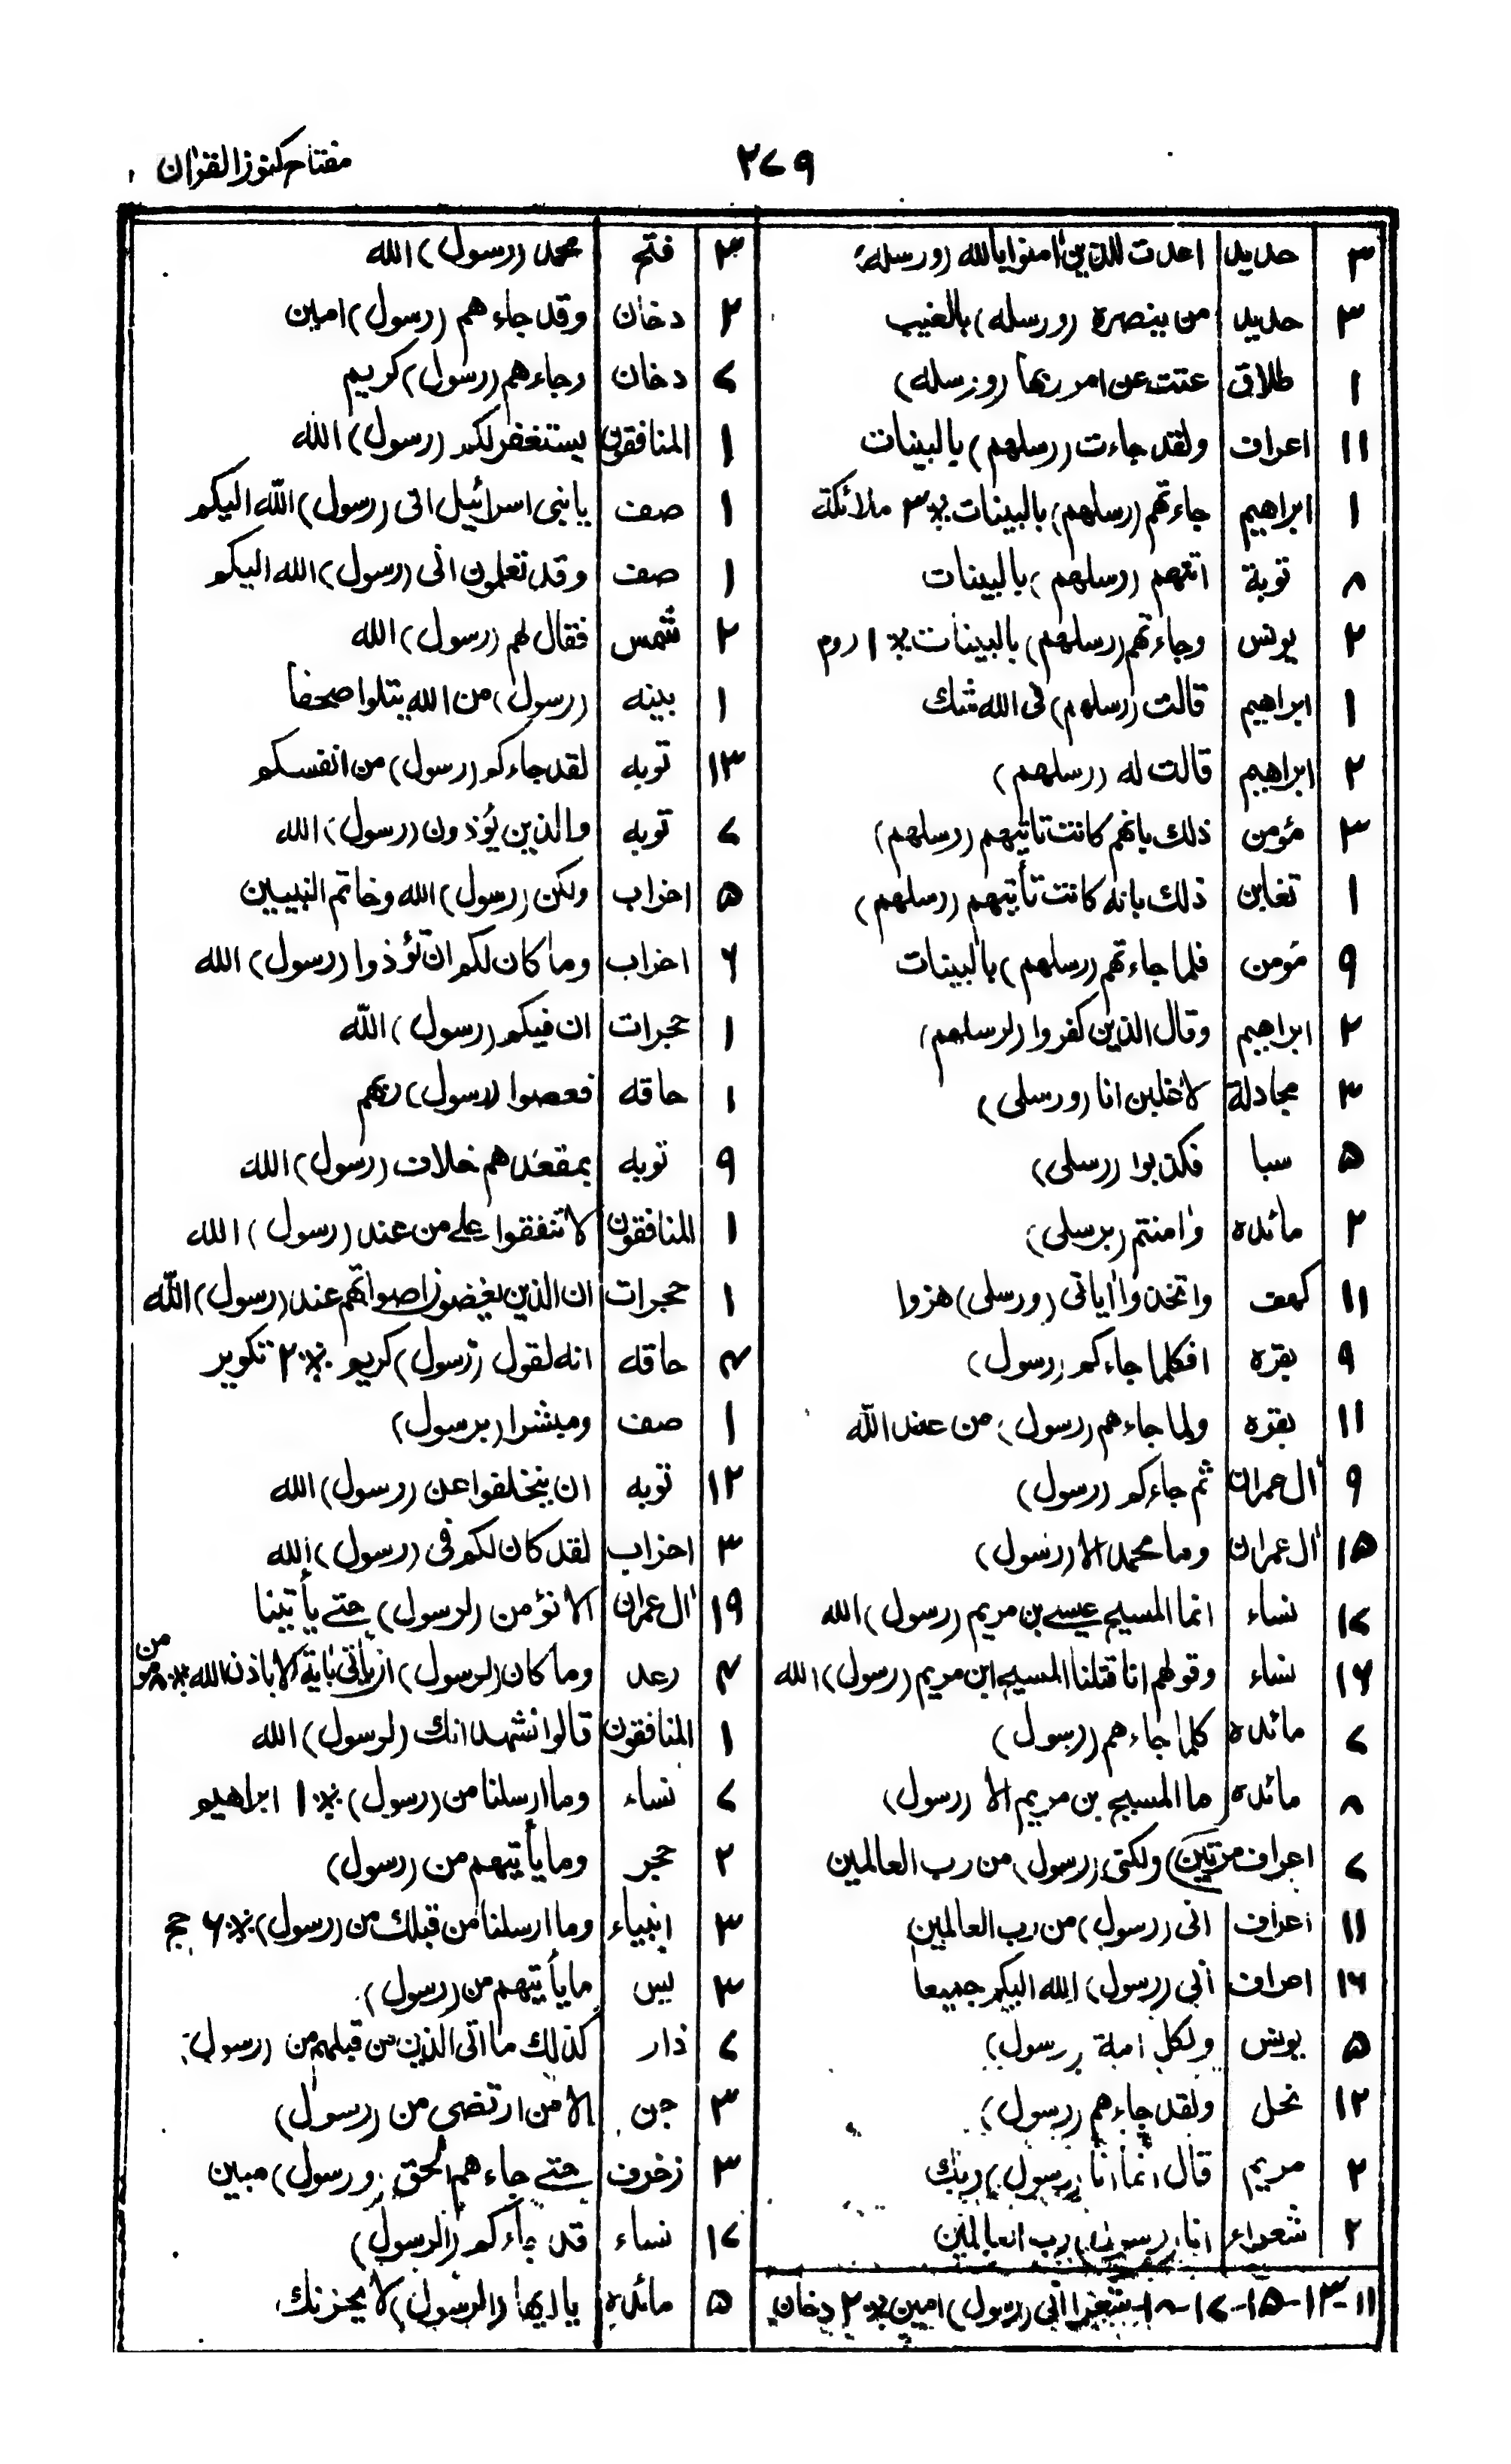 مفتاح کنوز القرآن
۲۷۹
۳ حدید اعدت للذین اٰمنوا بالله (ورسله)
۳ حدید من ینصره (ورسله) بالغیب
۱ طلاق عتت عن امر ربها (ورسله)
۱۱ اعراف ولقد جاءت (رسلهم) بالبینات
۱ ابراهیم جاءتهم (رسلهم) بالبینات ٪ ۳ ملائکة
۸ توبة اتتهم (رسلهم) بالبینات
۲ یونس وجاءتهم (رسلهم) بالبینات ٪ ۱ روم
۱ ابراهیم قالت (رسلهم) فی الله شك
۲ ابراهیم قالت له (رسلهم)
۳ مؤمن ذلك بانهم کانت تاتیهم (رسلهم)
۱ تغابن ذلك بانه کانت تأتیهم (رسلهم)
۹ مؤمن فلما جاءتهم (رسلهم) بالبینات
۲ ابراهیم وقال الذین کفروا (لرسلهم)
۳ مجادلة لاغلبن انا (ورسلی)
۵ سبا فکذبوا (رسلی)
۲ مائده واٰمنتم (برسلی)
۱۱ کهف واتخذوا اٰیاتی (ورسلی) هزوا
۹ بقره افکلما جاءکم (رسول)
۱۱ بقره ولما جاءهم (رسول) من عند الله
۹ اٰل عمران ثم جاءکم (رسول)
۱۵ اٰل عمران وما محمد الا (رسول)
۱۷ نساء انما المسیح عیسے بن مریم (رسول) الله
۱۶ نساء وقولهم انا قتلنا المسیح ابن مریم (رسول) الله
۷ مائده کلما جاءهم (رسول)
۸ مائده ما المسیح بن مریم الا (رسول)
۷ اعراف مرتین ولکنی (رسول) من رب العالمین
۱۱ اعراف انی (رسول) من رب العالمین
۱۶ اعراف انی (رسول) الله الیکم جمیعا
۵ یونس ولکل امة (رسول)
۱۲ نحل ولقد جاءهم (رسول)
۲ مریم قال انما انا (رسول) ربك
۲ شعراء انا (رسول) رب العالمین
۱۱-۱۳-۱۵-۱۷-۱۸- شعرا انی (رسول) امین ٪ ۲ دخان
۳ فتح محمد (رسول) الله
۲ دخان وقد جاءهم (رسول) امین
۷ دخان وجاءهم (رسول) کریم
۱ المنافقون یستغفر لکم (رسول) الله
۱ صف یابنی اسرائیل انی (رسول) الله الیکم
۱ صف وقد تعلمون انی (رسول) الله الیکم
۲ شمس فقال لهم (رسول) الله
۱ بینه (رسول) من الله یتلوا صحفا
۱۳ توبه لقد جاءکم (رسول) من انفسکم
۷ توبه والذین یؤذون (رسول) الله
۵ احزاب ولکن (رسول) الله وخاتم النبیین
۶ احزاب وما کان لکم ان تؤذوا (رسول) الله
۱ حجرات ان فیکم (رسول) الله
۱ حاقه فعصوا (رسول) ربهم
۹ توبه بمقعدهم خلاف (رسول) الله
۱ المنافقون لا تنفقوا علے من عند (رسول) الله
۱ حجرات ان الذین یغضون اصواتهم عند (رسول) الله
۲ حاقه انه لقول (رسول) کریم ٪ ۲ تکویر
۱ صف ومبشرا (برسول)
۱۲ توبه ان یتخلفوا عن (رسول) الله
۳ احزاب لقد کان لکم فی (رسول) الله
۱۹ اٰل عمران الا نؤمن (لرسول) حتے یأتینا
۴ رعد وما کان (لرسول) ان یأتی باٰیة الا باذن الله ٪ ۸ مومن
۱ المنافقون قالوا نشهد انك (لرسول) الله
۷ نساء وما ارسلنا من (رسول) ٪ ۱ ابراهیم
۲ حجر وما یأتیهم من (رسول)
۳ انبیاء وما ارسلنا من قبلك من (رسول) ٪ ۶ حج
۳ یس ما یأتیهم من (رسول)
۷ ذار کذلك ما اتی الذین من قبلهم من (رسول)
۳ جن الا من ارتضی من (رسول)
۳ زخرف حتے جاءهم الحق (ورسول) مبین
۱۷ نساء قد جاءکم (الرسول)
۵ مائده یا ایها (الرسول) لا یحزنك